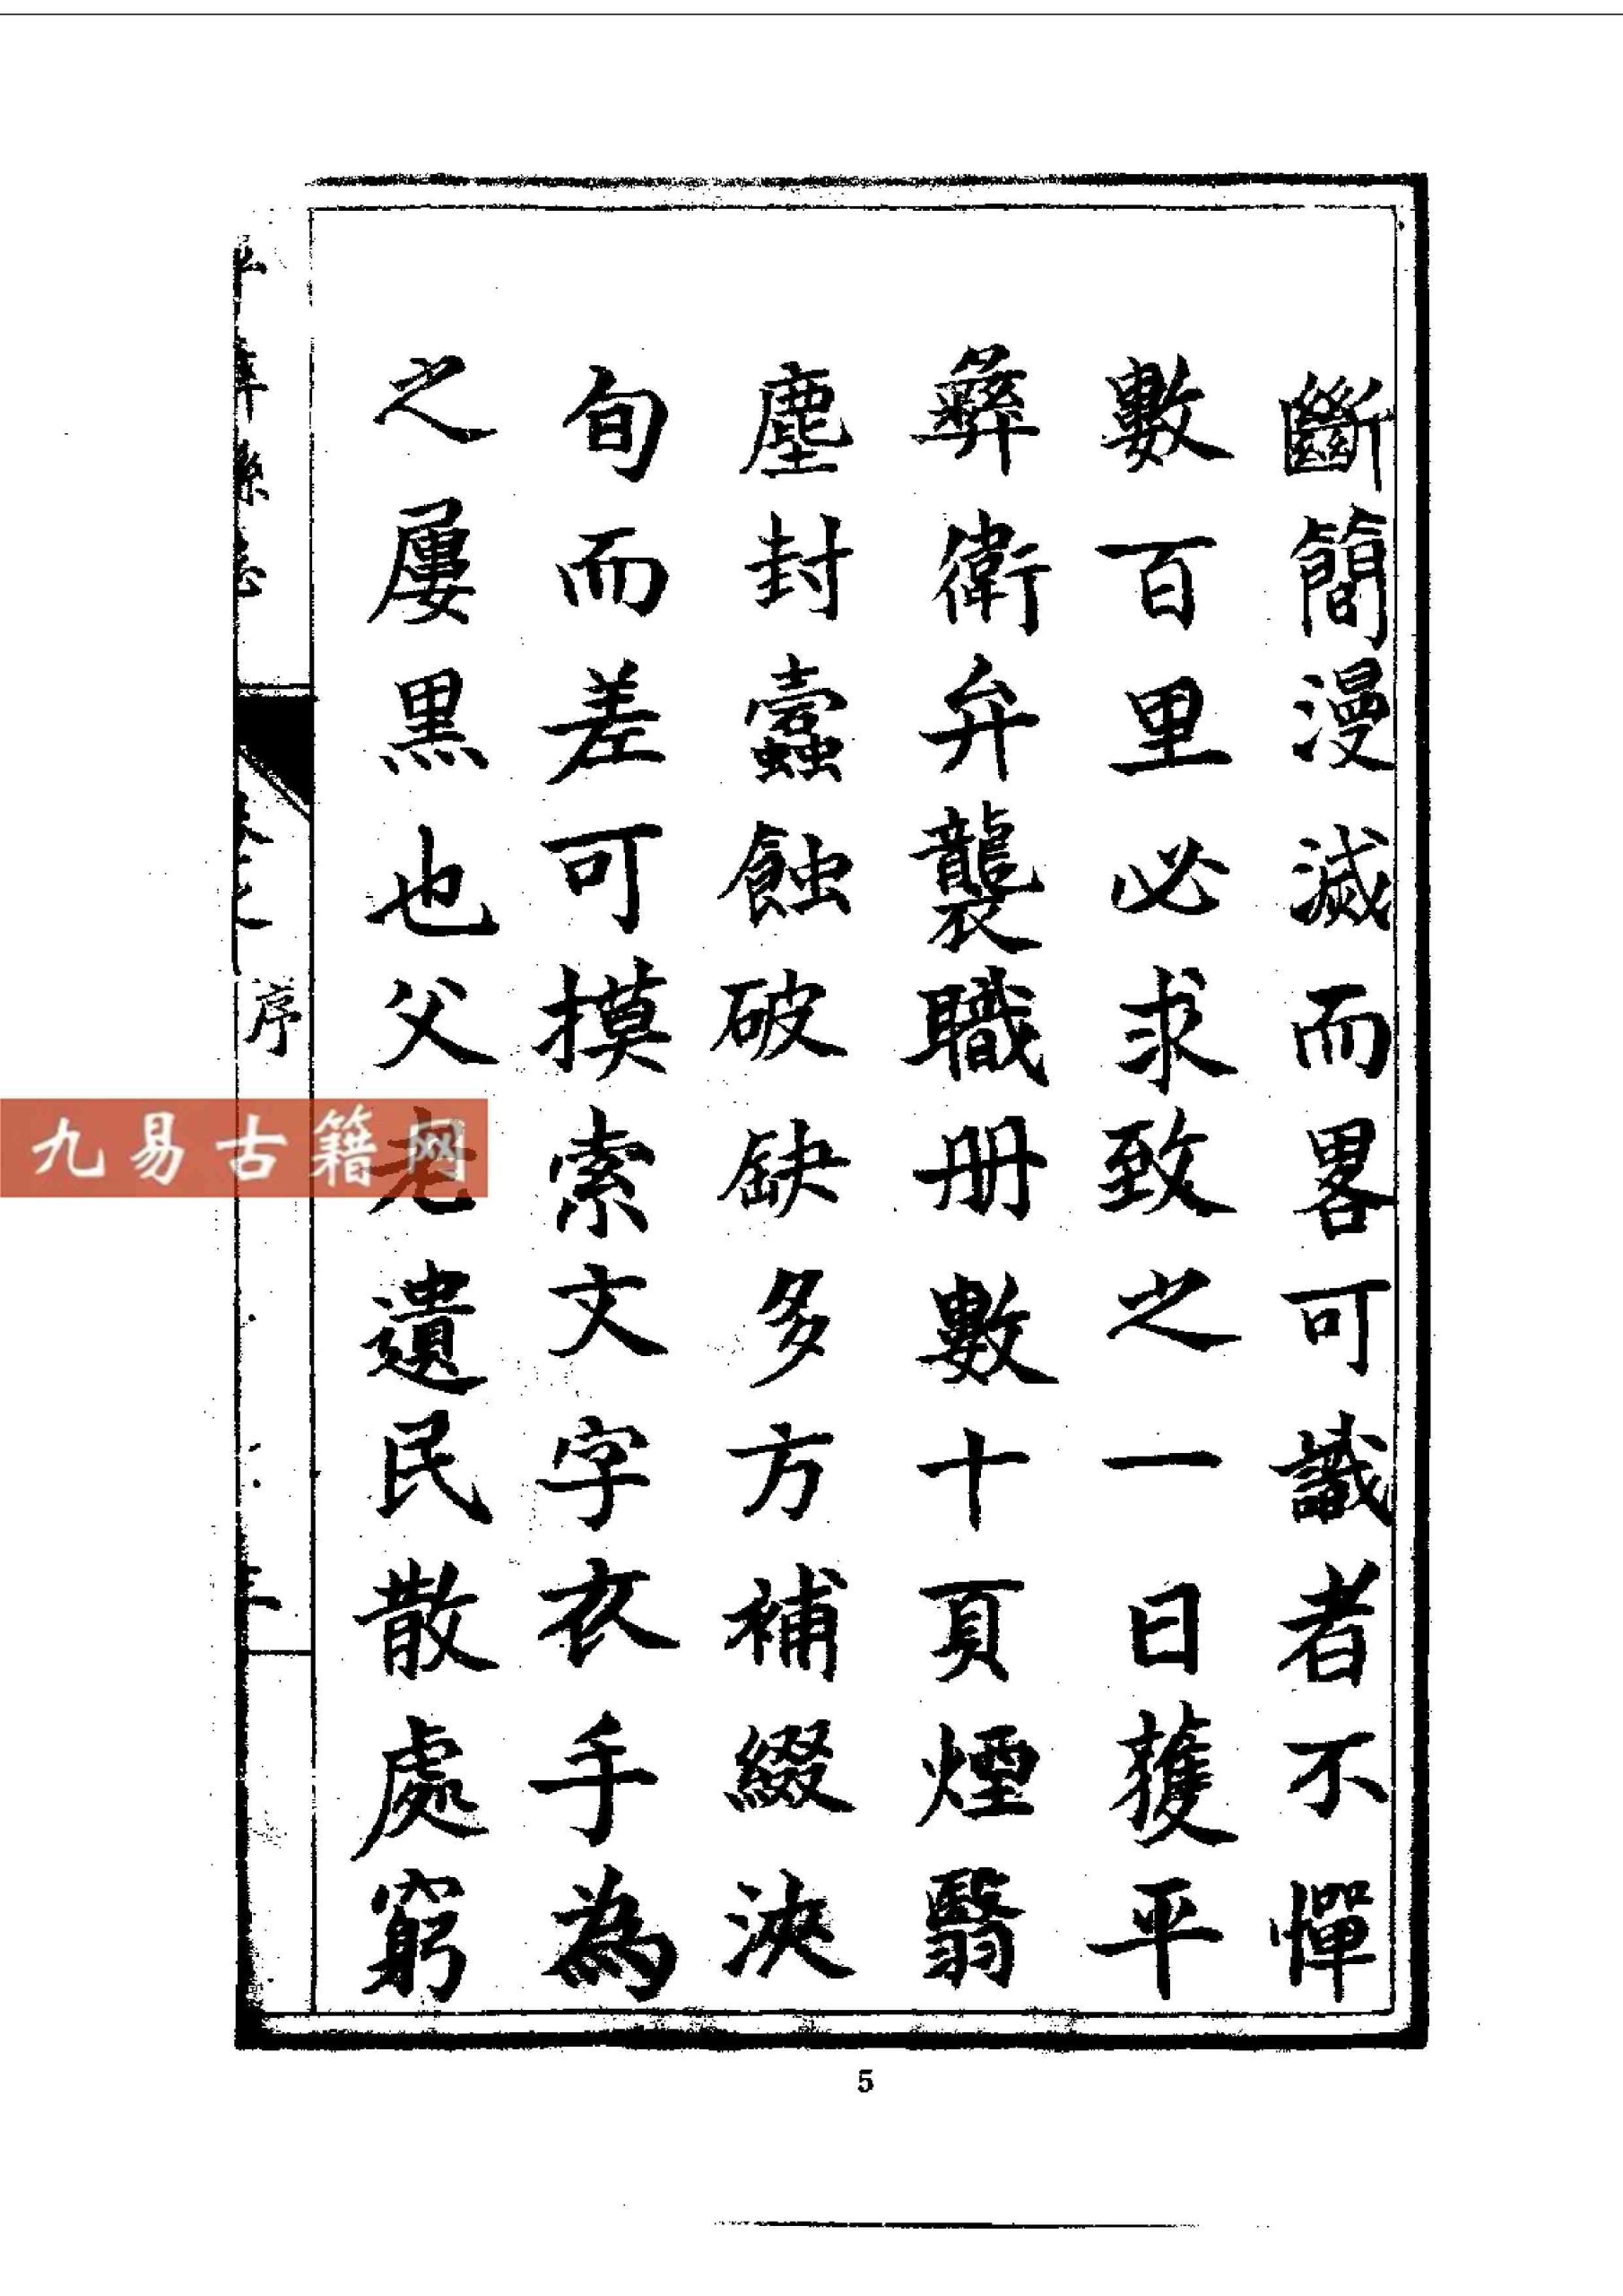 斷簡漫滅而畧可識者不憚
數百里必求致之一日獲平
彝衛弁襲職册數十頁煙翳
塵封蠧蝕破缺多方補綴浹
旬而差可摸索文字衣手為
之屢黑也父老遺民散處窮
序
九易古籍网
5